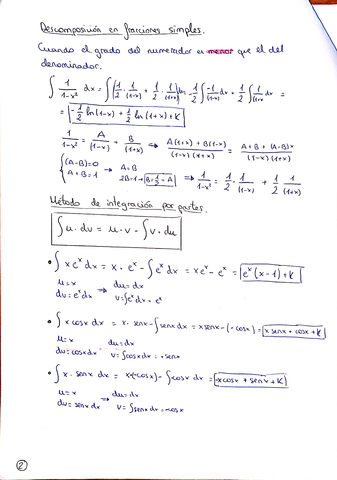 Descomposición en fracciones simples.
Cuando el grado del numerador es menor que el del
denominador.
∫ 1/(1-x²) dx = ∫(1/2 · 1/(1-x) + 1/2 · 1/(1+x)) dx = -1/2 ∫ -1/(1-x) dx + 1/2 ∫ 1/(1+x) dx =
= -1/2 ln(1-x) + 1/2 ln(1+x) + K
1/(1-x²) = A/(1-x) + B/(1+x) ⇒ (A(1+x) + B(1-x))/((1-x)(1+x)) = (A+B + (A-B)x)/((1-x)(1+x))
{(A-B)=0 → A=B
A+B=1 → 2B=1 → B=1/2=A ⇒ 1/(1-x²) = 1/2 · 1/(1-x) + 1/2 · 1/(1+x)
Método de integración por partes.
∫u·dv = u·v - ∫v·du
• ∫xeˣdx = x·eˣ - ∫eˣdx = xeˣ - eˣ = eˣ(x-1)+K
u=x → du=dx
dv=eˣdx v=∫eˣdx=eˣ
• ∫x cosx dx = x·senx - ∫senx dx = x senx - (-cosx) = x senx + cosx + K
u=x du=dx
dv=cosx dx v=∫cosx dx = senx
• ∫x·senx dx = x(-cosx) - ∫-cosx dx = -x cosx + senx + K
u=x → du=dx
dv=senx dx v=∫senx dx = -cosx
2